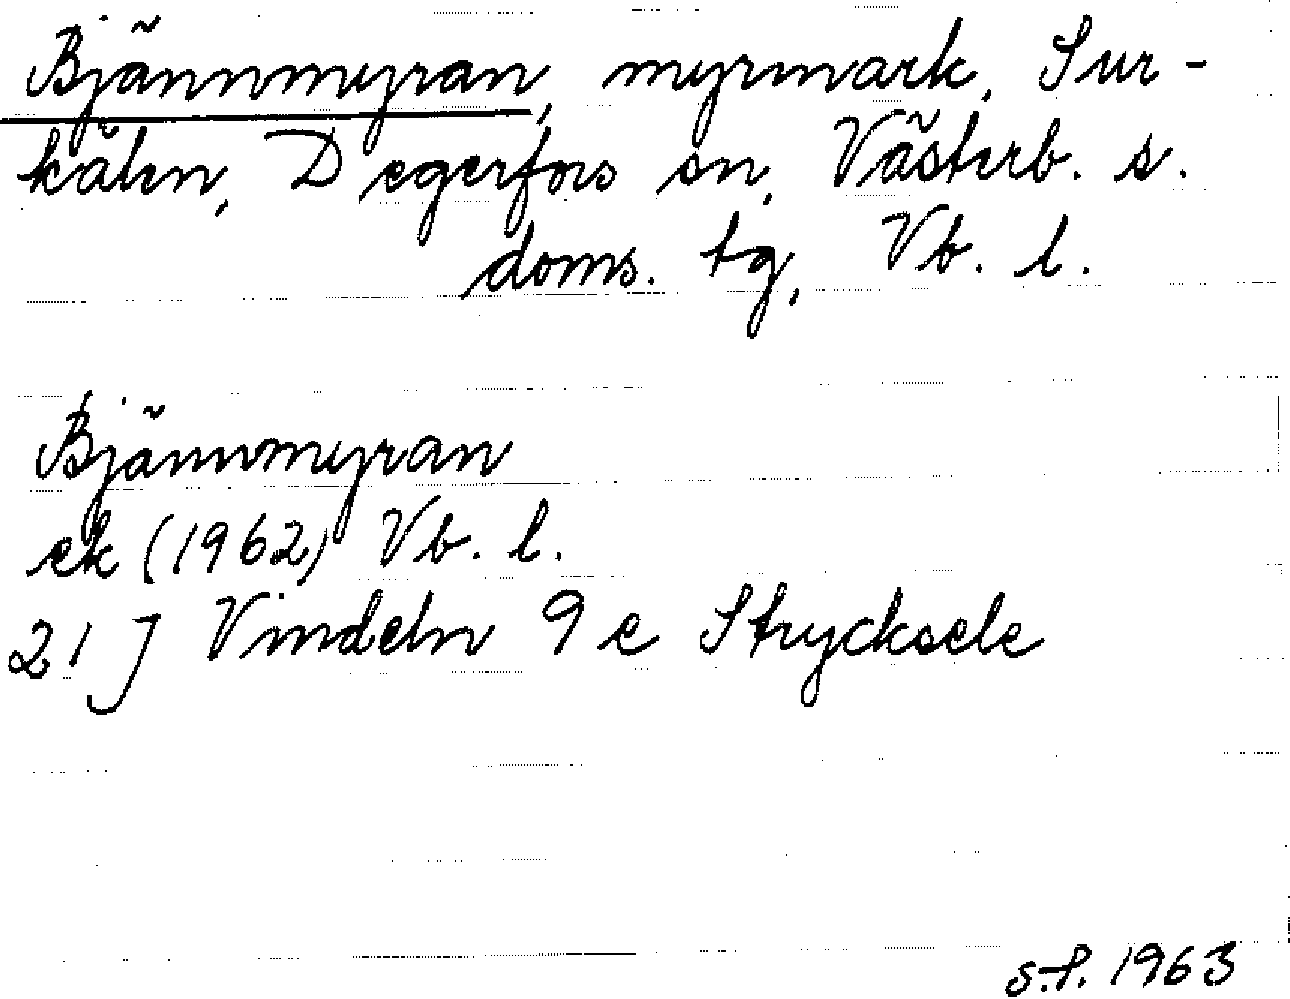 Bjännmyran, myrmark, Sur-
kålen, Degerfors sn, Västerb. s.
doms. tg, Vb. l.
Bjännmyran
ek (1962) Vb. l.
21 J Vindeln 9 e Strycksele
s.f. 1963